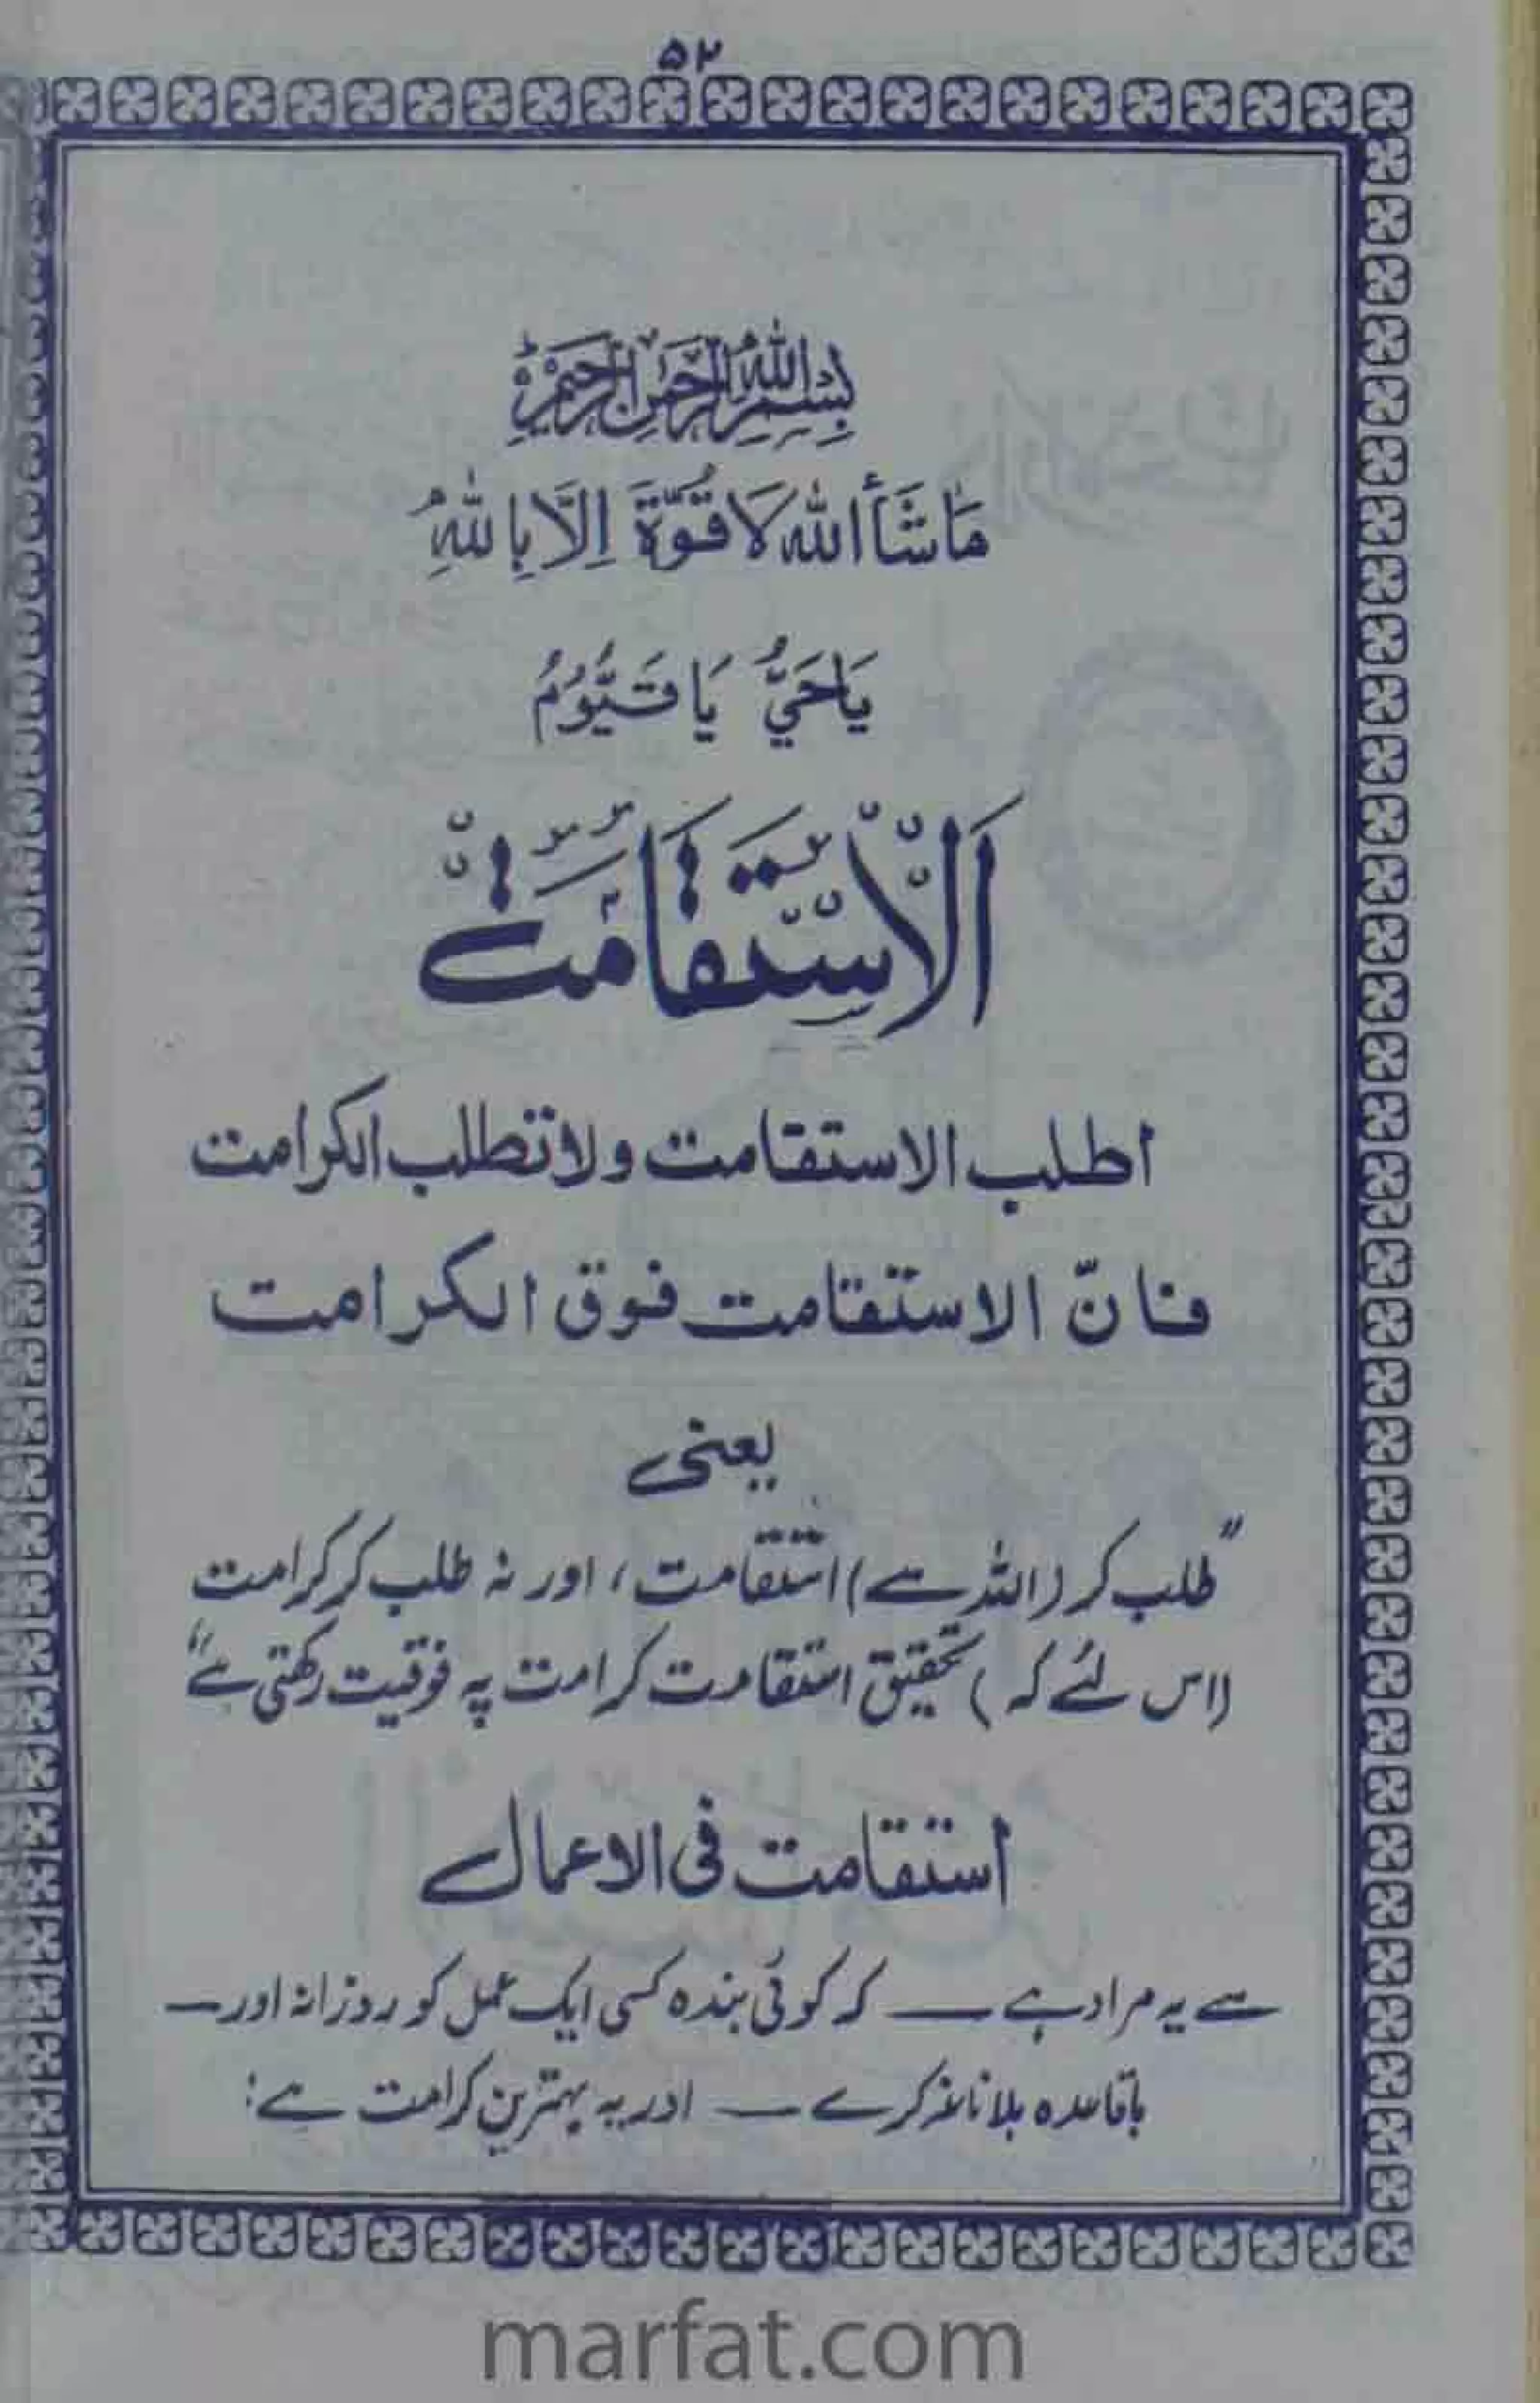 ۵۲
بِسْمِ اللهِ الرَّحْمٰنِ الرَّحِيْمِ
مَاشَآءَ اللهُ لَا قُوَّةَ اِلَّا بِاللهِ
يَاحَيُّ يَا قَيُّوْمُ
اَلْاِسْتِقَامَتْ
اطلب الاستقامت ولا تطلب الكرامت
فانّ الاستقامت فوق الكرامت
یعنی
”طلب کر (اللہ سے) استقامت، اور نہ طلب کر کرامت
(اس لئے کہ) تحقیق استقامت کرامت پہ فوقیت رکھتی ہے“
استقامت فی الاعمال
سے یہ مراد ہے — کہ کوئی بندہ کسی ایک عمل کو روزانہ اور —
باقاعدہ بلاناغہ کرے — اور یہ بہترین کرامت ہے:
marfat.com